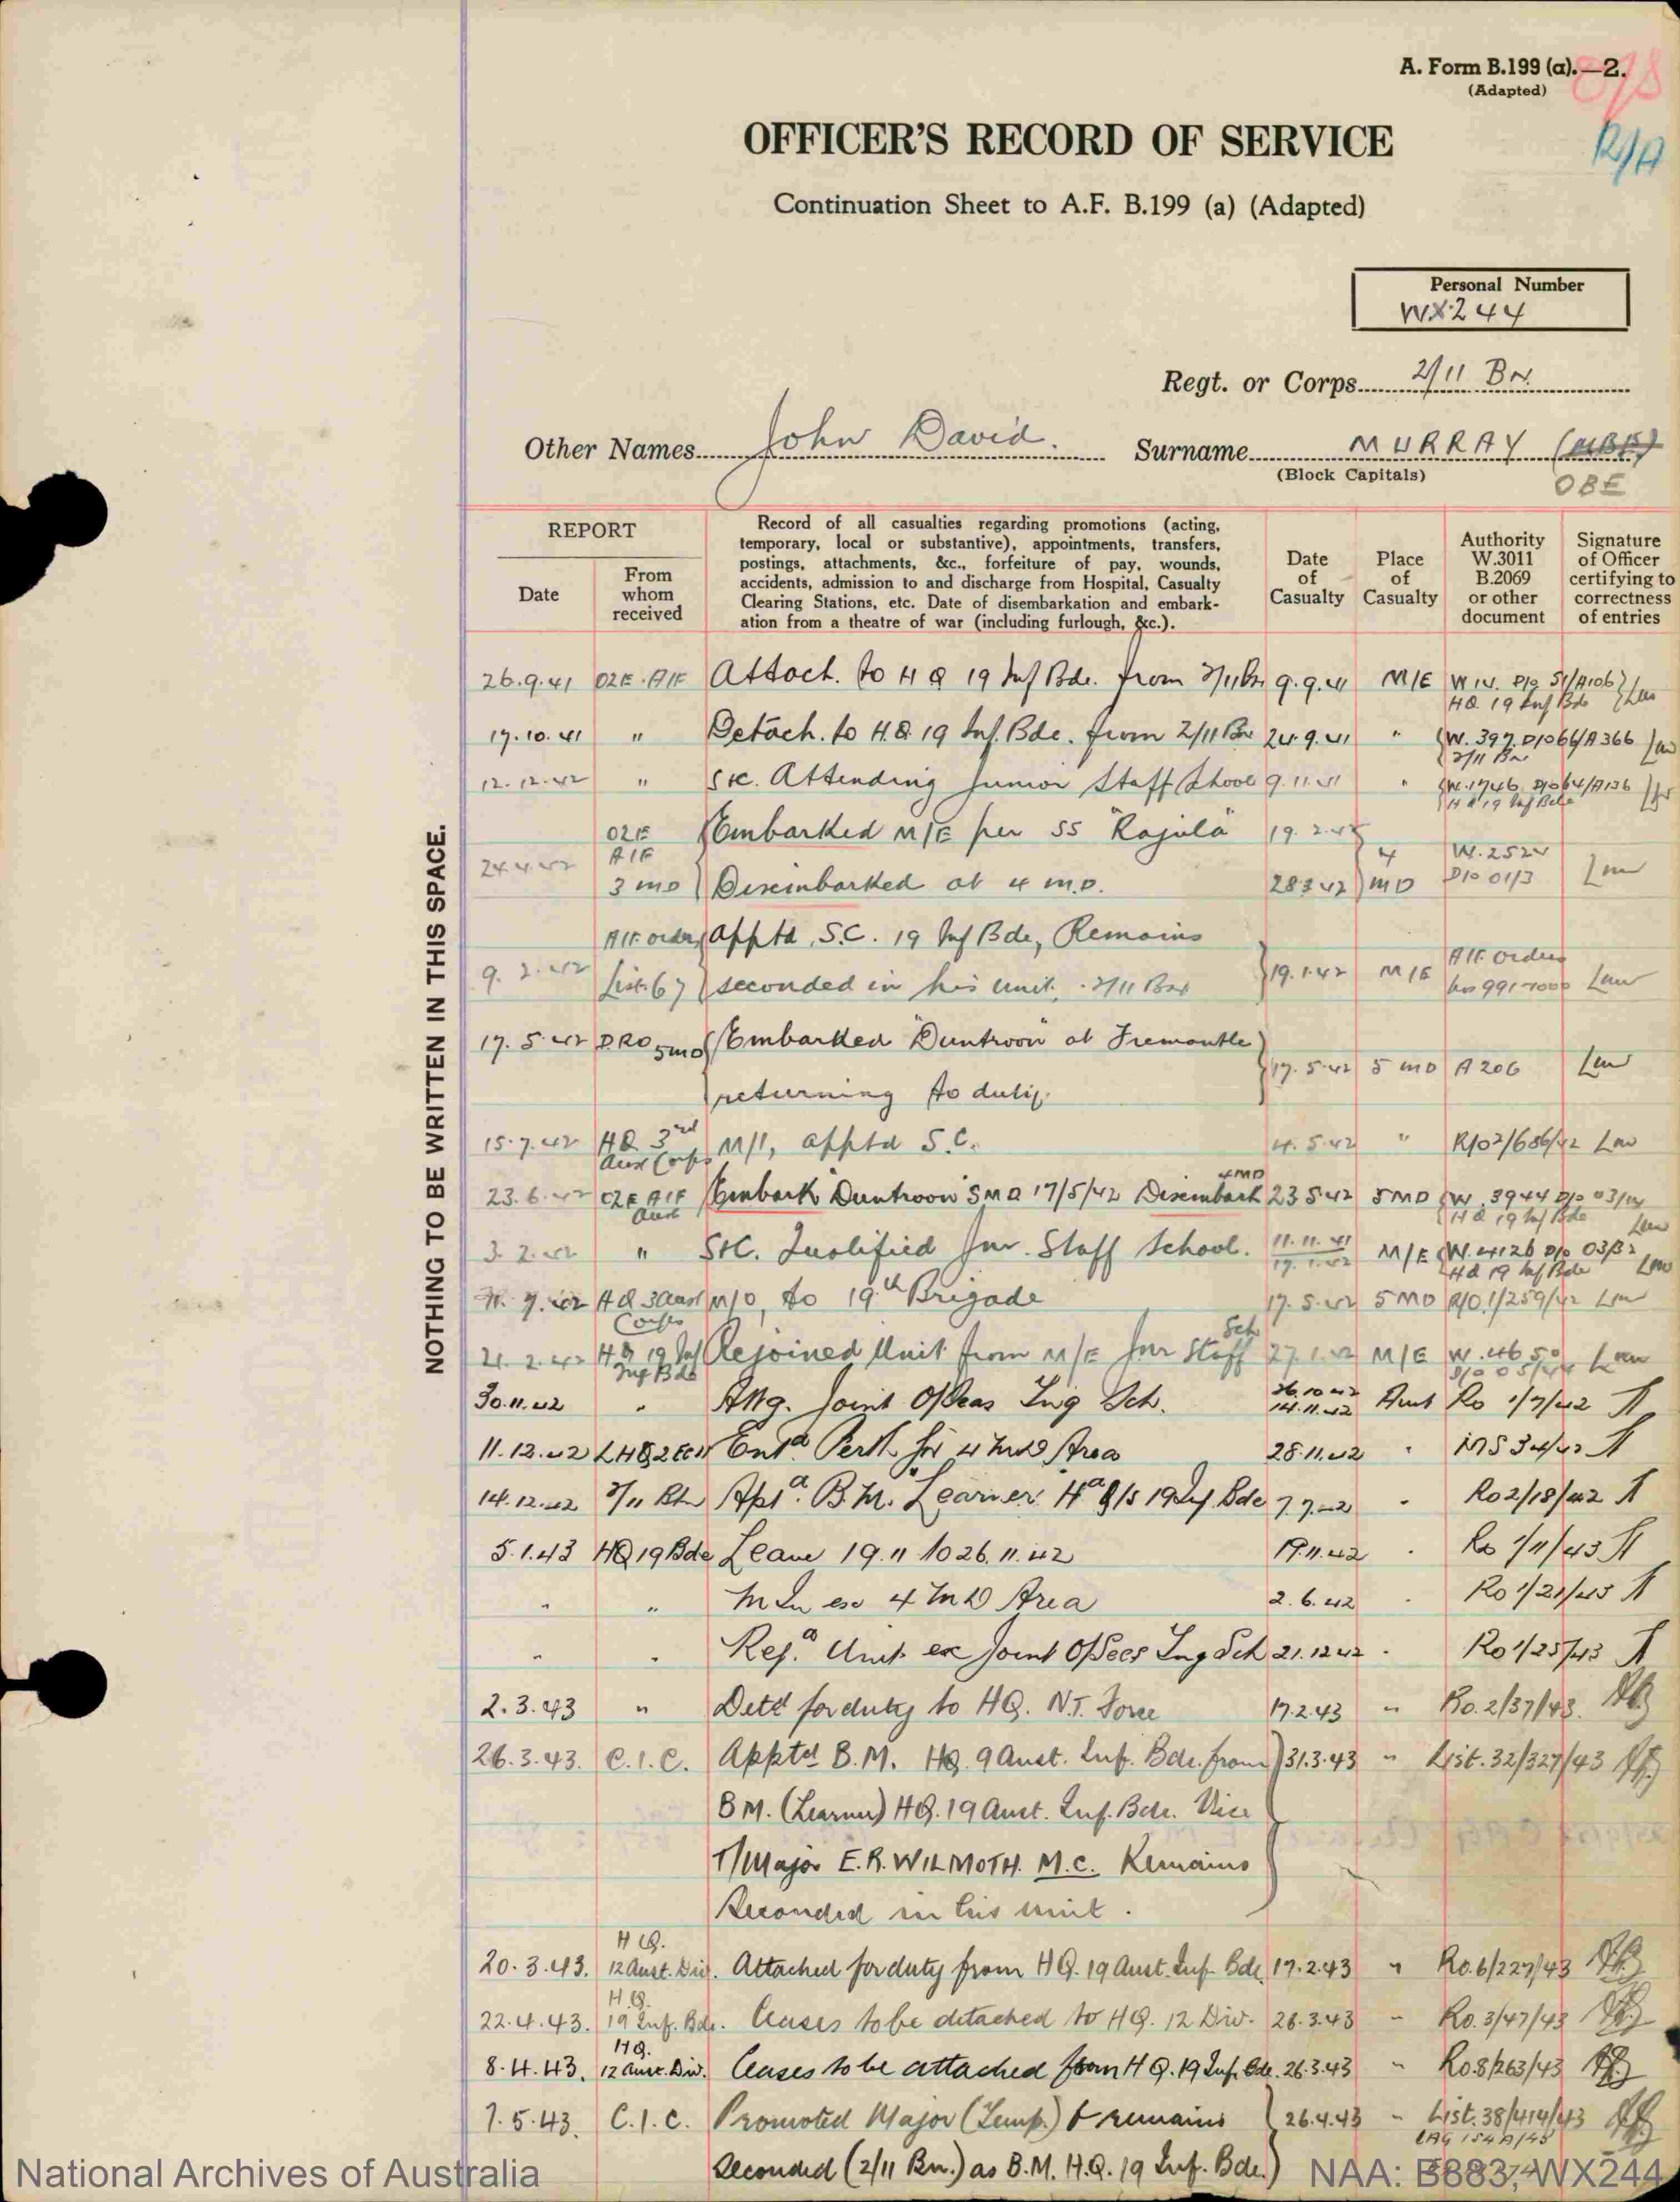 A. Form B.199 (a).—2.
(Adapted)
R/A
OFFICER'S RECORD OF SERVICE
Continuation Sheet to A.F. B.199 (a) (Adapted)
Personal Number
WX244
Regt. or Corps 2/11 Bn.
Other Names John David. Surname MURRAY (MBE)
(Block Capitals)
OBE
REPORT
Date
From whom received
Record of all casualties regarding promotions (acting,
temporary, local or substantive), appointments, transfers,
postings, attachments, &c., forfeiture of pay, wounds,
accidents, admission to and discharge from Hospital, Casualty
Clearing Stations, etc. Date of disembarkation and embark-
ation from a theatre of war (including furlough, &c.).
Date of Casualty
Place of Casualty
Authority W.3011 B.2069 or other document
Signature of Officer certifying to correctness of entries
NOTHING TO BE WRITTEN IN THIS SPACE.
26.9.41 O2E. AIF Attach. to HQ 19 Inf Bde. from 2/11 Bn 9.9.41 M/E
HQ 19 Inf Bde
19.10.41 " Detach. to H.Q. 19 Inf. Bde. from 2/11 Bn 24.9.41 " W. 397 A366
2/11 Bn
12.12.42 " Attending Junior Staff School 9.11.41 " W.1746
HQ 19 Inf Bde
O2E Embarked M/E per SS "Rajula" 19.2.42
AIF W.2524
3 MD Disembarked at 4 M.D. 28 3 42 4 MD 01/3
AIF orders Apptd. S.C. 19 Inf Bde, Remains
9.2.42 List 67 seconded in his unit. 2/11 Bn 19.1.42 M/E AIF Orders
17.5.42 DRO 5MD Embarked "Duntroon" at Fremantle
returning to duty. 17.5.42 5 MD A206
15.7.42 HQ 3rd Aust Corps M/I, apptd S.C. 4.5.42 " R/02/686/42
23.6.42 O2E AIF Aust Embark Duntroon 5MD 17/5/42 Disembark 4MD 23 5 42 5MD W.3944
HQ 19 Inf Bde
3.2.42 " Qualified Jnr. Staff School. 11.11.41 M/E W.4126
HQ 19 Inf Bde
HQ 3 Aust Corps M/O, to 19th Brigade 17.5.42 5MD R/O.1/259/42
21.2.42 HQ 19 Inf Bde Rejoined Unit from M/E Jnr Staff Sch 27.1.42 M/E W.4650
30.11.42 " Attg. Joint O/Seas Trg Sch. 26.10.42 Aust Ro 1/7/42
14.11.42
11.12.42 LHQ 2 Ech Entd. Perth for 4 MD Area 28.11.42 "
14.12.42 2/11 Bn Aptd. B.M. Learner HQ 19 Inf Bde 7.7.42 " Ro 2/18/42
5.1.43 HQ 19 Bde Leave 19.11 to 26.11.42 19.11.42 " Ro 1/11/43
" " M In ex 4 MD Area 2.6.42 " Ro 1/21/43
" " Rej'd Unit ex Joint O/Sees Trg Sch 21.12.42 " Ro 1/25/43
2.3.43 " Detd for duty to HQ. N.T. Force 17.2.43 " Ro.2/37/43.
26.3.43. C.I.C. Apptd B.M. HQ. 9 Aust. Inf. Bde. from 31.3.43 " List.32/327/43
BM. (Learner) HQ. 19 Aust. Inf. Bde. Vice
T/Major E.R. WILMOTH. M.C. Remains
Seconded in his unit.
20.3.43. HQ. 12 Aust. Div. Attached for duty from HQ. 19 Aust. Inf. Bde. 17.2.43 " Ro.6/227/43
22.4.43. H.Q. 19 Inf. Bde. Ceases to be detached to HQ. 12 Div. 26.3.43 " Ro.3/47/43
8.4.43. HQ. 12 Aust. Div. Ceases to be attached from HQ. 19 Inf. Bde. 26.3.43 " Ro.8/263/43
7.5.43. C.I.C. Promoted Major (Temp.) & remains 26.4.43 " List.38/414/43
Seconded (2/11 Bn.) as B.M. H.Q. 19 Inf. Bde.
National Archives of Australia
NAA: B883, WX244